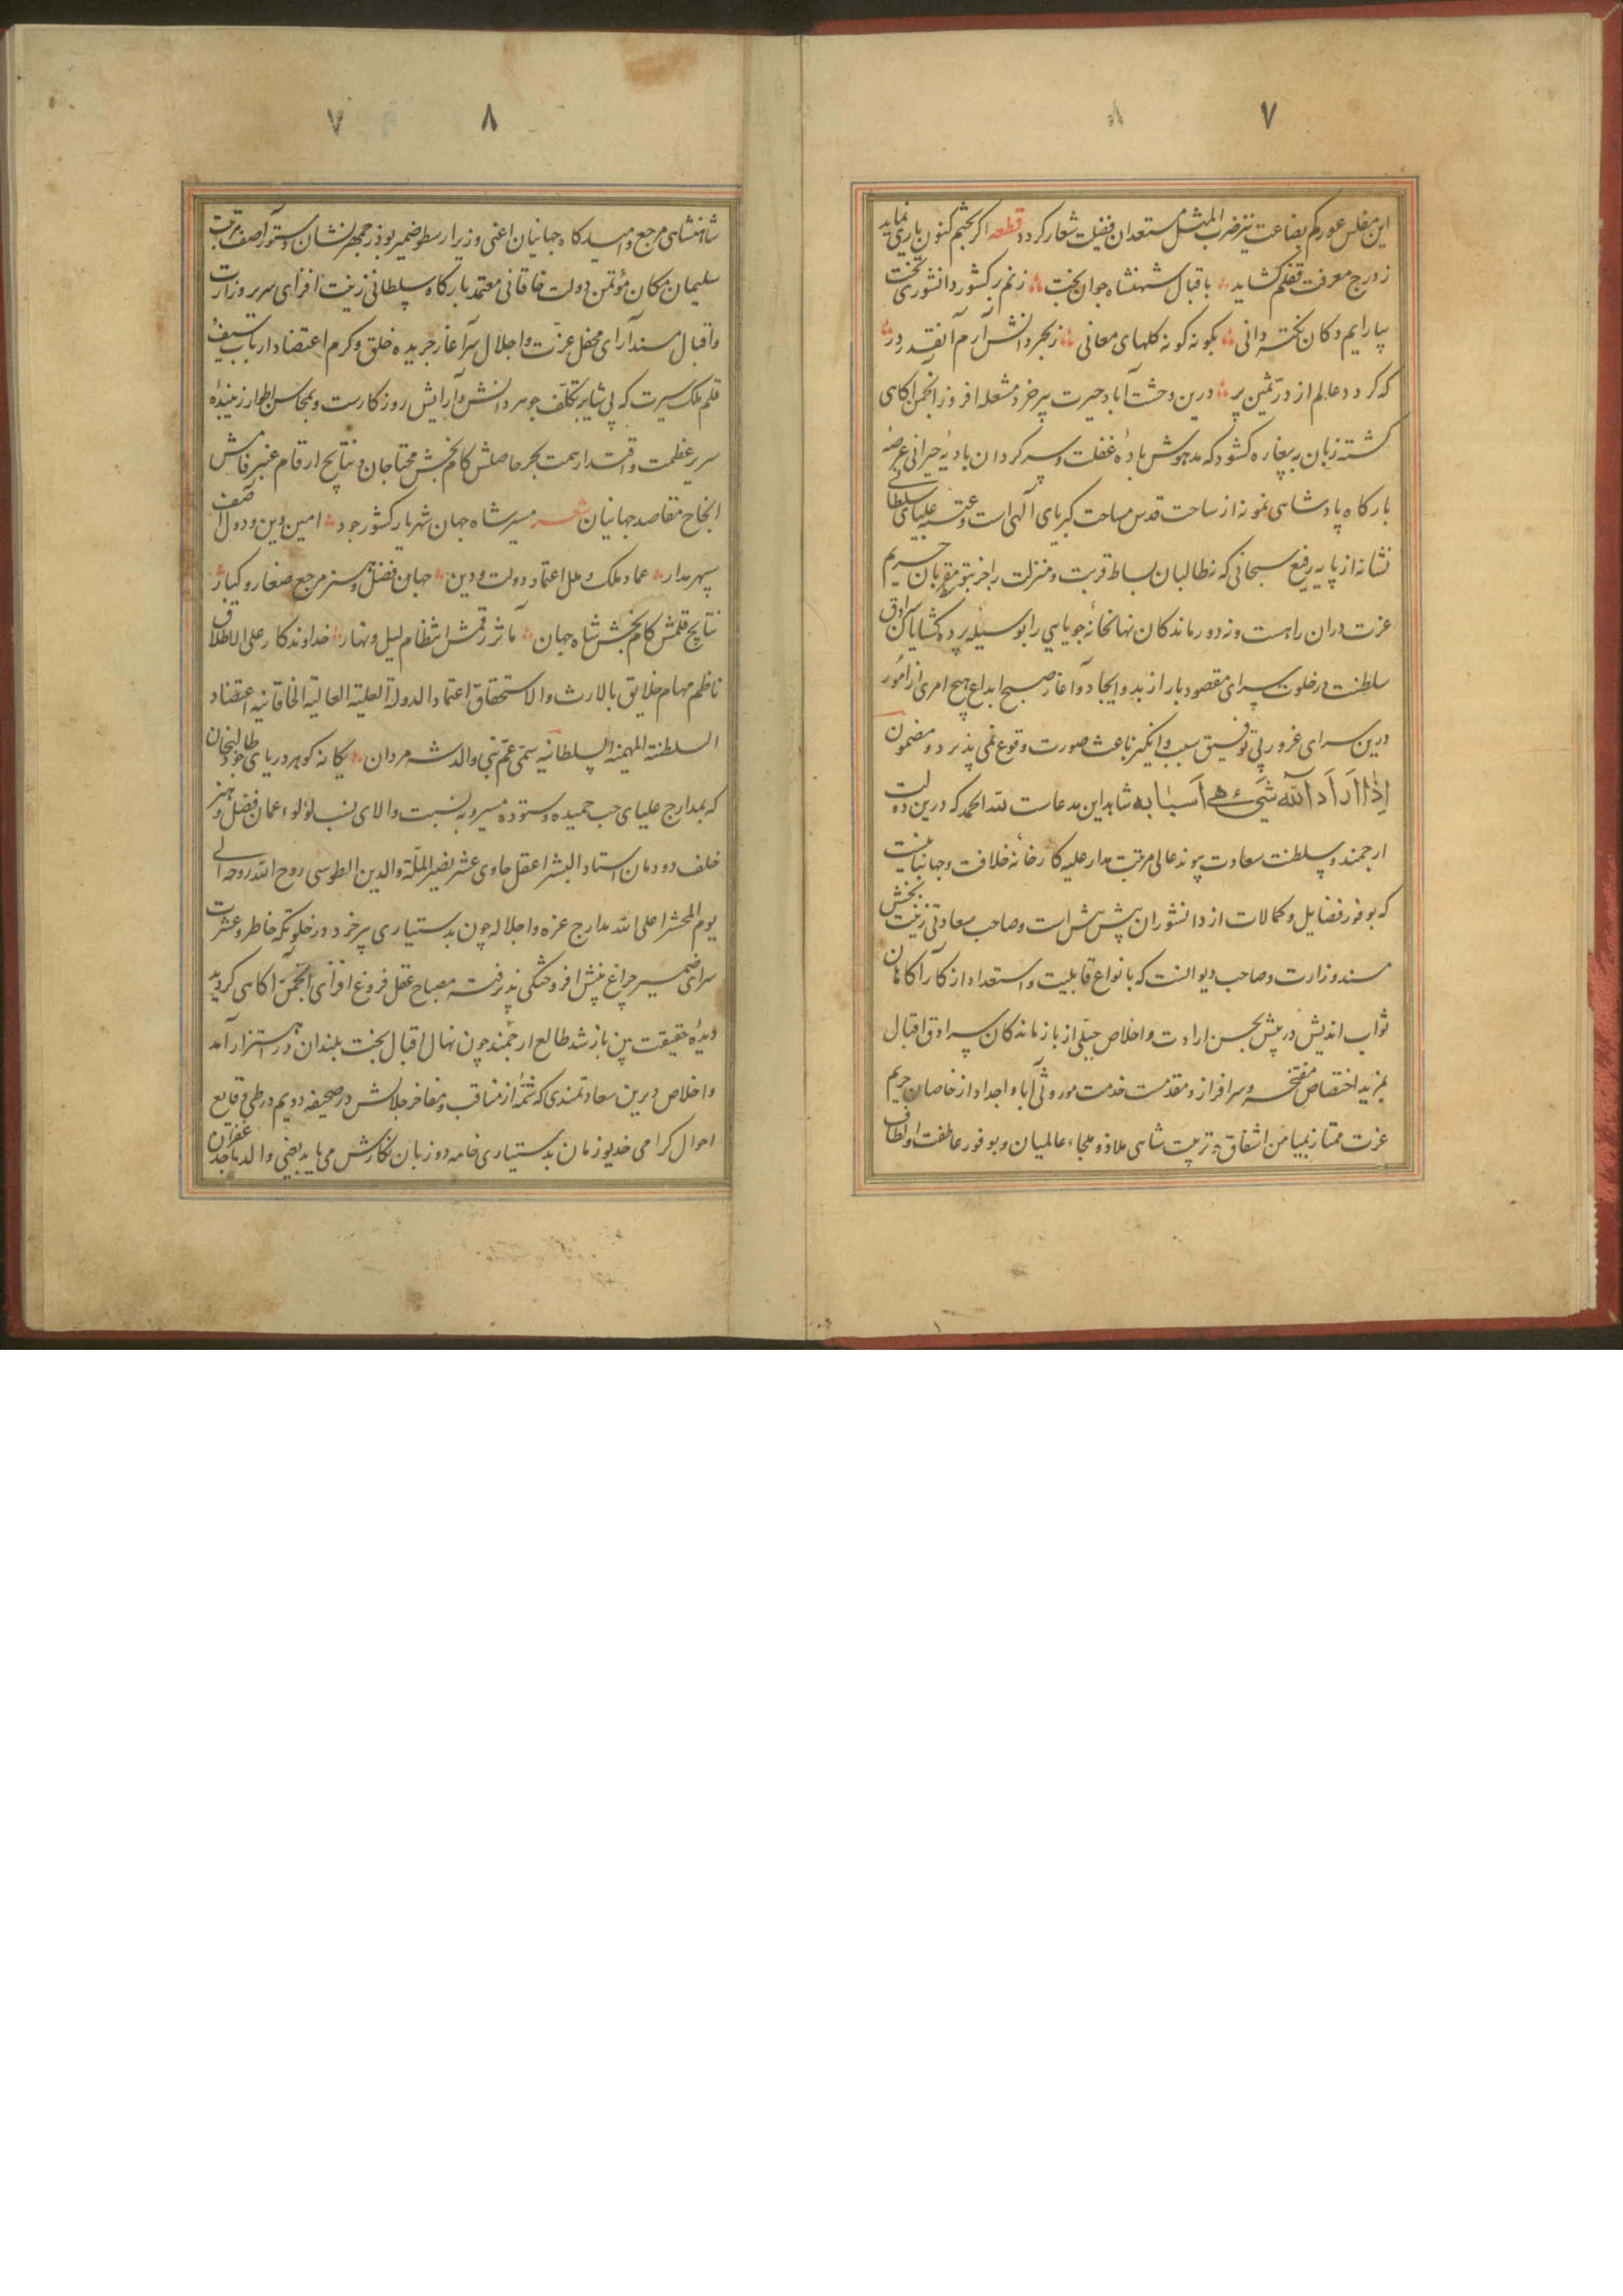 ۷
این مفلس عور کم بضاعت نیز ضرب المثل مستعدان فضیلت شعار کردد قطعه اکر بختم کنون یاری نماید
ز درج معرفت قفلم کشاید باقبال شهنشاه جوان بخت زنم بر کشور دانشوری تخت
بیارایم دکان نکته دانی بکونه کونه کلهای معانی ز بحر دانش آرم آنقدر در
که کردد عالم از در ثمین پر درین وحشت آباد حیرت پیر خرد مشعله افروز انجمن آکاهی
کشته زبان به بیغاره کشود که مدهوش بادهٔ غفلت و سرکردان بادیهٔ حیرانی عرصه
بارکاه پادشاهی نمونه از ساحت قدس مساحت کبریای الهی است و عتبه علیای سلطانی
نشانه از پایه رفیع سبحانی که نه طالبان بساط قربت و منزلت را جز بتو مقربان حریم
عزت دران راهست و نه دورماندکان نهانخانه جویایی را بوسیله پرده کشایان سرادق
سلطنت در خلوت سرای مقصود بار از بدو ایجاد و آغاز صبح ابداع هیچ امری از امور
درین سرای غرور بی توفیق سبب و انکیز باعث صورت وقوع نمی پذیرد و مضمون
اِذٰا اَرَادَ اللّٰه شَیْء هیّ اَسبٰابه شاهد این مدعاست لله الحمد که درین دولت
ارجمند و سلطنت سعادت پیوند عالی مرتبت مدار علیه کارخانه خلافت و جهانبانیست
که بوفور فضایل و کمالات از دانشوران بیش بیش است و صاحب سعادتی زینت بخش
مسند وزارت و صاحب دیوانست که بانواع قابلیت و استعداد از کارآکاهان
ثواب اندیش در پیش بحسن ارادت و اخلاص جبلی از بازماندکان سرادق اقبال
بمزید اختصاص مفتخر و سرافراز و مقدمت خدمت موروثی آبا و اجداد از خاصان حریم
عزت ممتاز بمیامن اشفاق و تربیت شاهی ملاذ و ملجاء عالمیان و بوفور عاطفت و الطاف
۸
شاهنشاهی مرجع و امیدکاه جهانیان اعنی وزیر ارسطو ضمیر بوذرجمهر نشان دستور آصف مرتبت
سلیمان مکان مؤتمن دولت خاقانی معتمد بارکاه سلطانی زینت افزای سریر وزارت
و اقبال مسند آرای محفل عزت و اجلال سرآغاز جریده خلق و کرم اعتضاد ارباب سیف و
قلم ملک سیرت که بی شایبه تکلف جوهر دانش و آرایش روزکارست و بمحاسن اطوار زیبندهٔ
سریر عظمت و اقتدار همت بحر حاصلش کام بخش محتاجان و نتایج ارقام عنبر فامش
انجاح مقاصد جهانیان شعر مسیر شاه جهان شهریار کشور جود امین دین و دول آصف
سپهر مدار عماد ملک و ملل اعتماد دولت و دین جهان فضل و هنر مرجع صغار و کبار
نتایج قلمش کام بخش شاه جهان مآثر رقمش انتظام لیل و نهار خداوندکار علی الاطلاق
ناظم مهام خلایق بالارث والاستحقاق اعتماد الدولة العلیة العالیة الخاقانیه اعتضاد
السلطنة البهیة السلطانیه سمی عم نبی والد شه مردان یکانه کوهر دریای جود طالبخان
که بمدارج علیای حسب حمیده و ستوده مسیر و به نسبت والای نسب لؤلؤ عمان فضل و هنر
خلف دودمان استاد البشر اعقل حاوی عشر نصیر الملّة والدین الطوسی روح الله روحه الی
یوم المحشر اعلی الله مدارج عزه و اجلاله چون بدستیاری پیر خرد در خلوتکه خاطر و عشرت
سرای ضمیر چراغ بینش افروختکی پذیرفت مصباح عقل فروغ افزای انجمن آکاهی کردید
دیدهٔ حقیقت بین باز شد طالع ارجمند چون نهال اقبال بخت بلندان در اهتزاز آمد
و اخلاص دیرین سعادتمندی که شمهٔ از مناقب و مفاخر جلالش در صحیفه دویم در طی وقایع
احوال کرامی خدیو زمان بدستیاری خامه دو زبان نکارش می یابد یعنی والد ماجد غفران